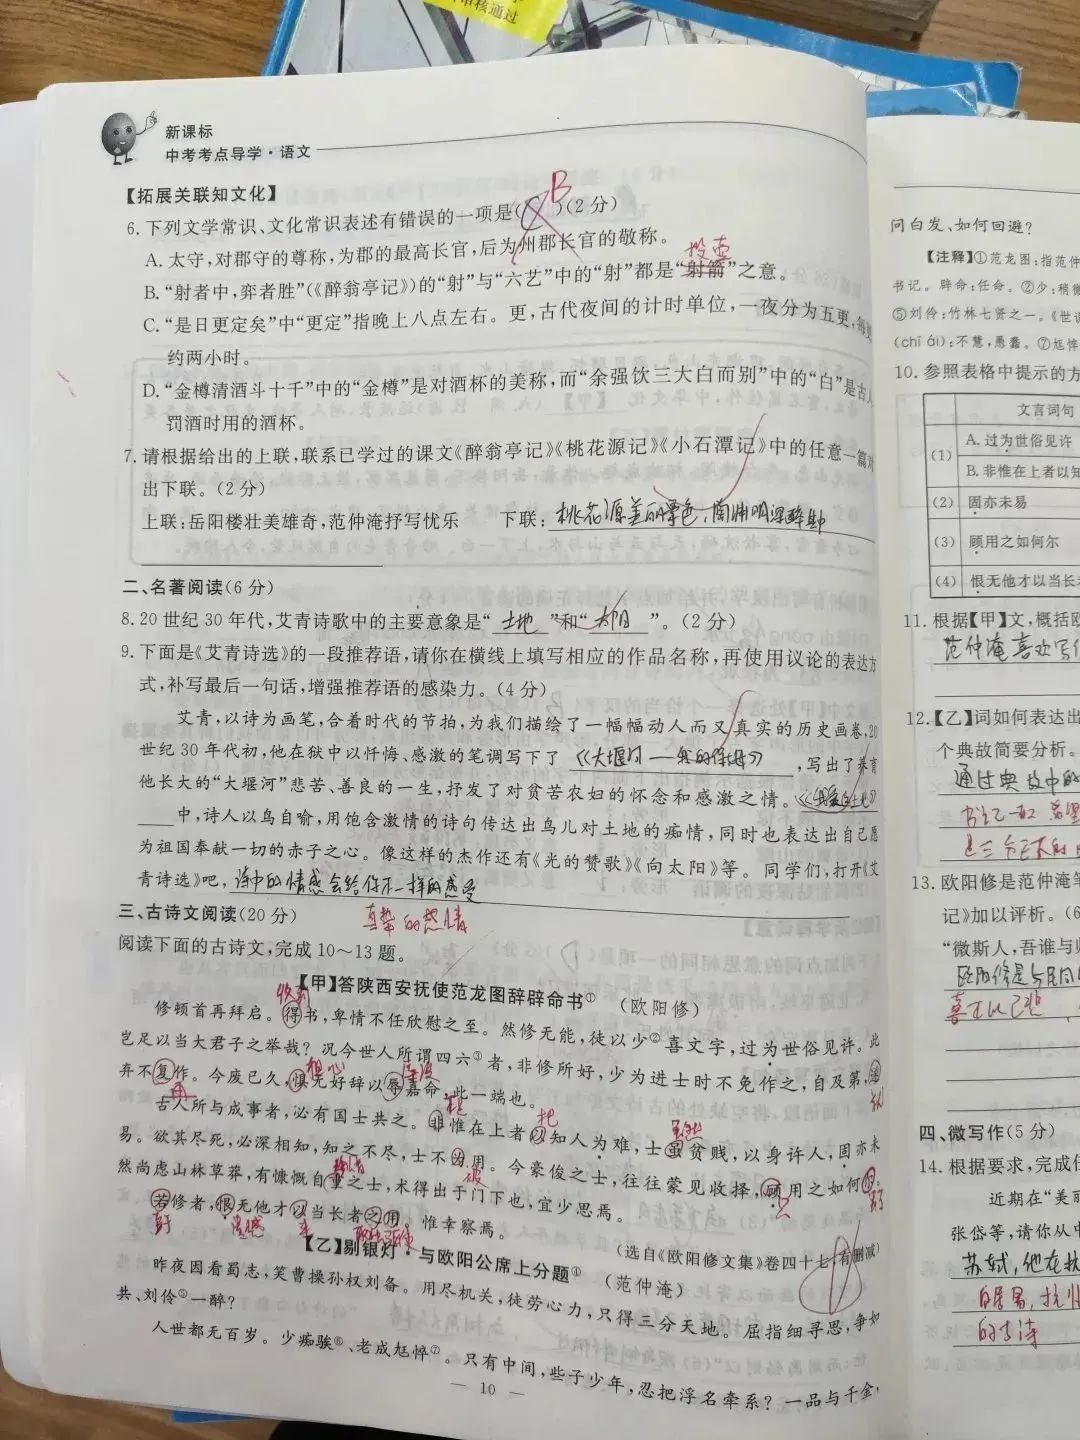 审核通过
新课标
中考考点导学·语文
【拓展关联知文化】
B
6.下列文学常识、文化常识表述有错误的一项是(C)(2分)
A.太守,对郡守的尊称,为郡的最高长官,后为州郡长官的敬称。
投壶
B.“射者中,弈者胜”(《醉翁亭记》)的“射”与“六艺”中的“射”都是“射箭”之意。
C.“是日更定矣”中“更定”指晚上八点左右。更,古代夜间的计时单位,一夜分为五更,每更
约两小时。
D.“金樽清酒斗十千”中的“金樽”是对酒杯的美称,而“余强饮三大白而别”中的“白”是古人
罚酒时用的酒杯。
7.请根据给出的上联,联系已学过的课文《醉翁亭记》《桃花源记》《小石潭记》中的任意一篇对
出下联。(2分)
上联:岳阳楼壮美雄奇,范仲淹抒写忧乐 下联:桃花源美丽景色,陶渊明深醉
二、名著阅读(6分)
8.20世纪30年代,艾青诗歌中的主要意象是“土地”和“太阳”。(2分)
9.下面是《艾青诗选》的一段推荐语,请你在横线上填写相应的作品名称,再使用议论的表达方
式,补写最后一句话,增强推荐语的感染力。(4分)
艾青,以诗为画笔,合着时代的节拍,为我们描绘了一幅幅动人而又真实的历史画卷,20
世纪30年代初,他在狱中以忏悔、感激的笔调写下了《大堰河——我的保姆》,写出了养育
他长大的“大堰河”悲苦、善良的一生,抒发了对贫苦农妇的怀念和感激之情。《我爱这土地》
中,诗人以鸟自喻,用饱含激情的诗句传达出鸟儿对土地的痴情,同时也表达出自己愿
为祖国奉献一切的赤子之心。像这样的杰作还有《光的赞歌》《向太阳》等。同学们,打开《艾
青诗选》吧,诗中的情感会给你不一样的感受
真挚的热情
三、古诗文阅读(20分)
阅读下面的古诗文,完成10～13题。
【甲】答陕西安抚使范龙图辞辟命书① (欧阳修)
收到
修顿首再拜启。得书,卑情不任欣慰之至。然修无能,徒以少②喜文字,过为世俗见许。此
岂足以当大君子之举哉?况今世人所谓四六③者,非修所好,少为进士时不免作之,自及第,遂
担心
弃不复作。今废已久,惧无好辞以辱嘉命,此一端也。
再
古人所与成事者,必有国士共之。非惟在上者以知人为难,士虽贫贱,以身许人,固亦未
把
虽然
易。欲其尽死,必深相知,知之不尽,士不为用。今豪俊之士,往往蒙见收择,顾用之如何尔。
被
只
然尚虑山林草莽,有慷慨自重之士,未得出于门下也,宜少思焉。
若修者,恨无他才以当长者之用,惟幸察焉。
遗憾
来
(选自《欧阳修文集》卷四十七,有删减)
【乙】剔银灯·与欧阳公席上分题④ (范仲淹)
昨夜因看蜀志,笑曹操孙权刘备。用尽机关,徒劳心力,只得三分天地。屈指细寻思,争如
共、刘伶⑤一醉?
人世都无百岁。少痴騃⑥、老成尪悴⑦。只有中间,些子少年,忍把浮名牵系?一品与千金,
— 10 —
问白发、如何回避?
【注释】①范龙图:指范仲
书记。辟命:任命。②少:稍微
⑤刘伶:竹林七贤之一。《世说
(chī ái):不慧,愚蠢。⑦尪悴
10.参照表格中提示的方
文言词句
(1)
A.过为世俗见许
B.非惟在上者以知
(2) 固亦未易
(3) 顾用之如何尔
(4) 恨无他才以当长
11.根据【甲】文,概括欧
范仲淹喜欢写
12.【乙】词如何表达出
个典故简要分析。
通过典故中的
13.欧阳修是范仲淹笔
记》加以评析。(6
“微斯人,吾谁与归
欧阳修是与民同
喜 以己悲
四、微写作(5分)
14.根据要求,完成任
近期在“美丽
张岱等,请你从中
苏轼,他在杭
白居易,杭州
的古诗